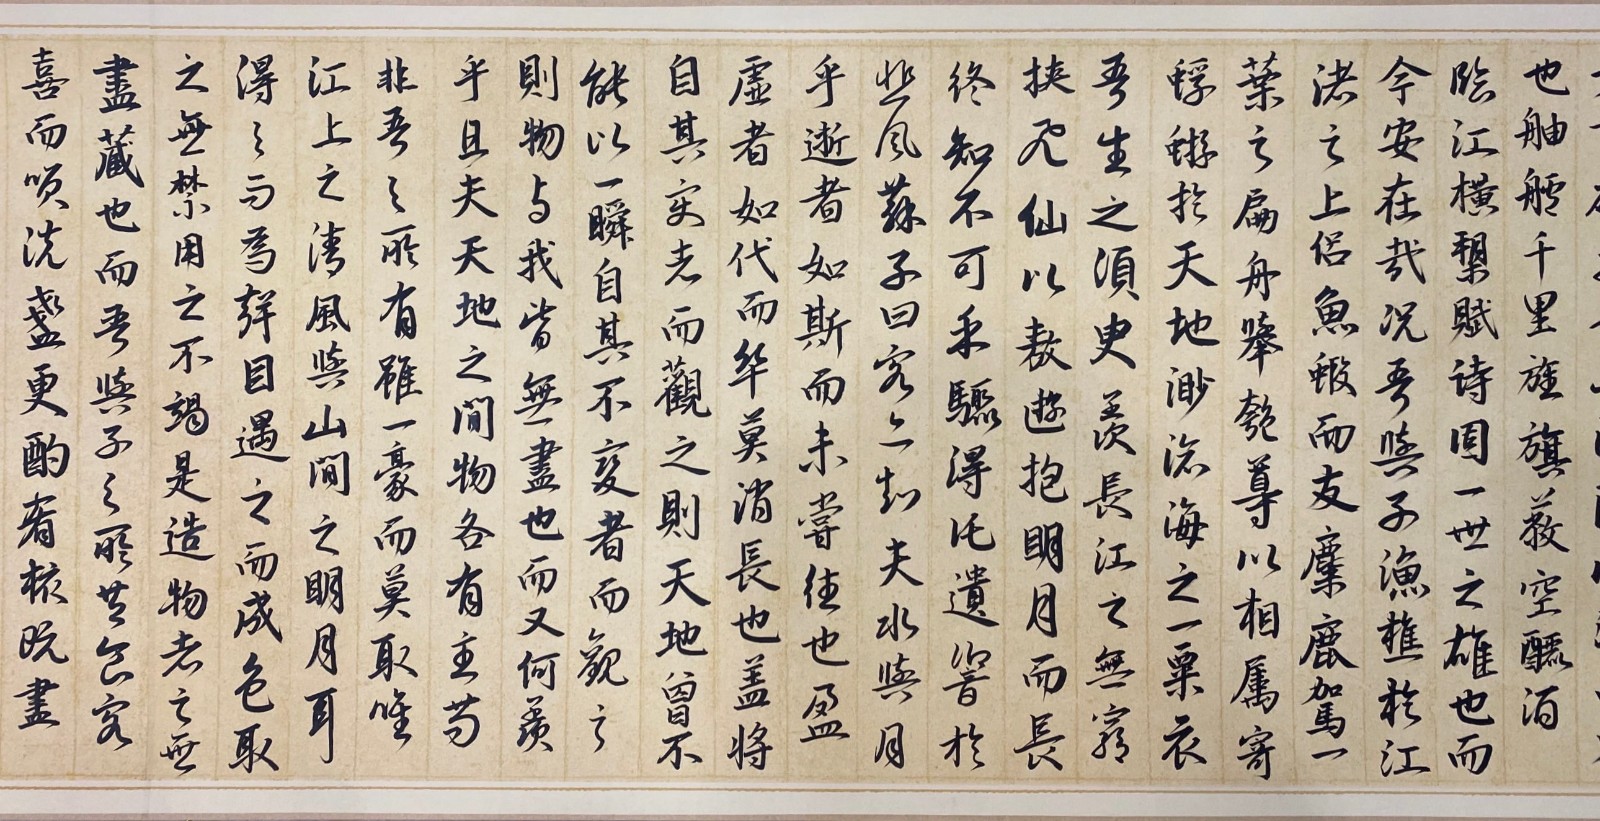 也舳艫千里旌旗蔽空釃酒
臨江橫槊賦詩固一世之雄也而
今安在哉況吾與子漁樵於江
渚之上侶魚蝦而友麋鹿駕一
葉之扁舟舉匏尊以相屬寄
蜉蝣於天地渺滄海之一粟哀
吾生之須臾羨長江之無窮
挾飛仙以敖遊抱明月而長
終知不可乎驟得託遺響於
悲風蘇子曰客亦知夫水與月
乎逝者如斯而未嘗往也盈
虛者如代而卒莫消長也蓋將
自其變者而觀之則天地曾不
能以一瞬自其不變者而觀之
則物與我皆無盡也而又何羨
乎且夫天地之間物各有主苟
非吾之所有雖一豪而莫取唯
江上之清風與山間之明月耳
得之而為聲目遇之而成色取
之無禁用之不竭是造物者之無
盡藏也而吾與子之所共食客
喜而笑洗盞更酌肴核既盡